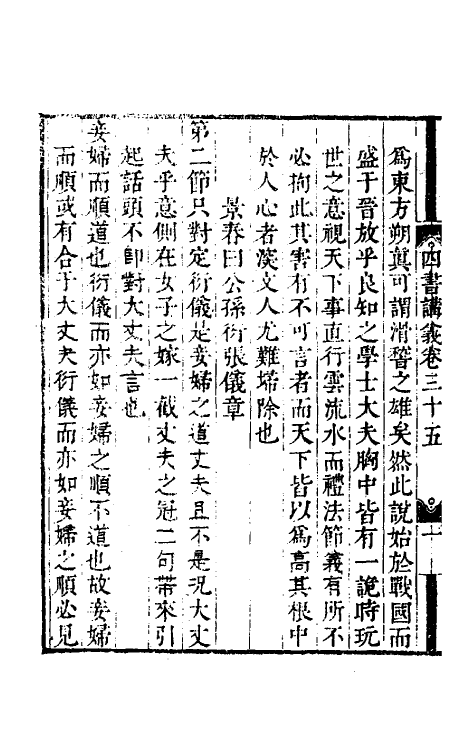 四書講義卷三十五
爲東方朔眞可謂滑稽之雄矣然此說始於戰國而
盛于晉放乎良知之學士大夫胸中皆有一詭時玩
世之意視天下事直行雲流水而禮法節義有所不
必拘此其害有不可言者而天下皆以爲高其根中
於人心者深文人尤難埽除也
景春曰公孫衍張儀章
第二節只對定衍儀是妾婦之道丈夫且不是況大丈
夫乎意側在女子之嫁一截丈夫之冠二句帶來引
起話頭不卽對大丈夫言也
妾婦而順道也衍儀而亦如妾婦之順不道也故妾婦
而順或有合于大丈夫衍儀而亦如妾婦之順必見